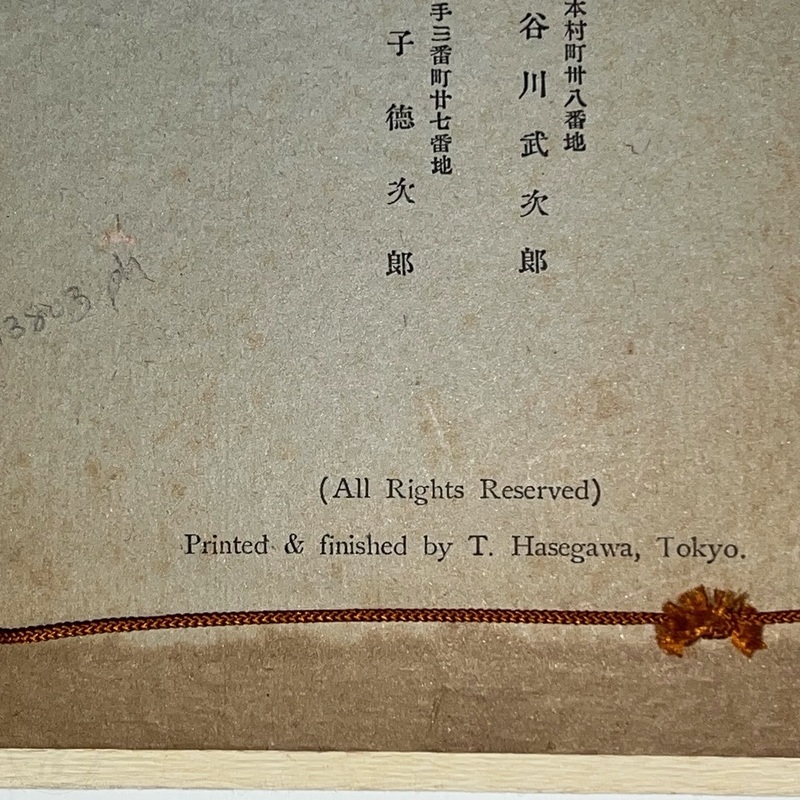 本村町卅八番地
谷川武次郎
手三番町廿七番地
子徳次郎
3803 ph
(All Rights Reserved)
Printed & finished by T. Hasegawa, Tokyo.